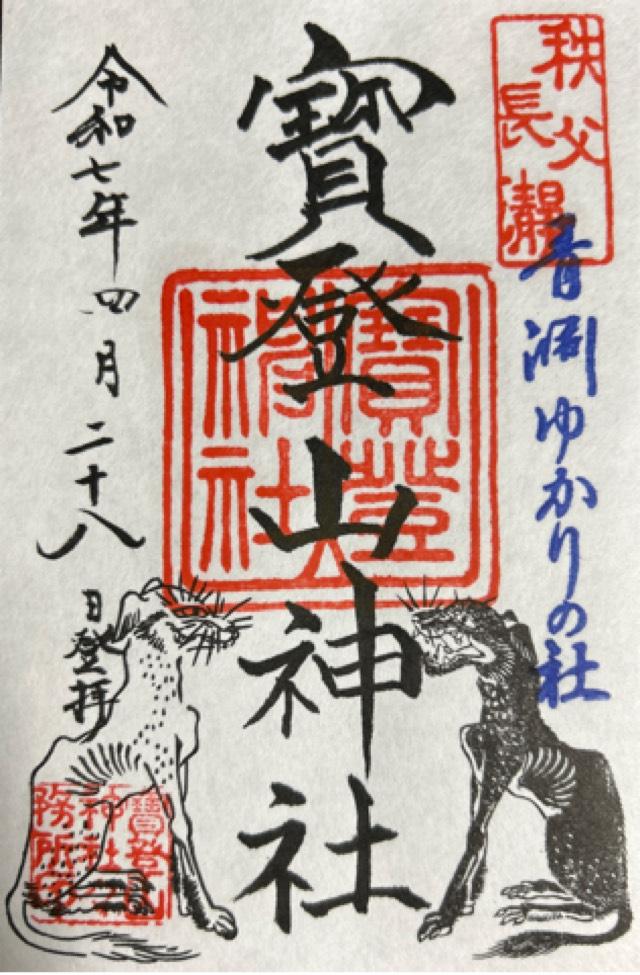 秩父
長瀞
青淵ゆかりの社
寶登山神社
寶登
神社
令和七年四月二十八日登拝
寶登山
神社
務所